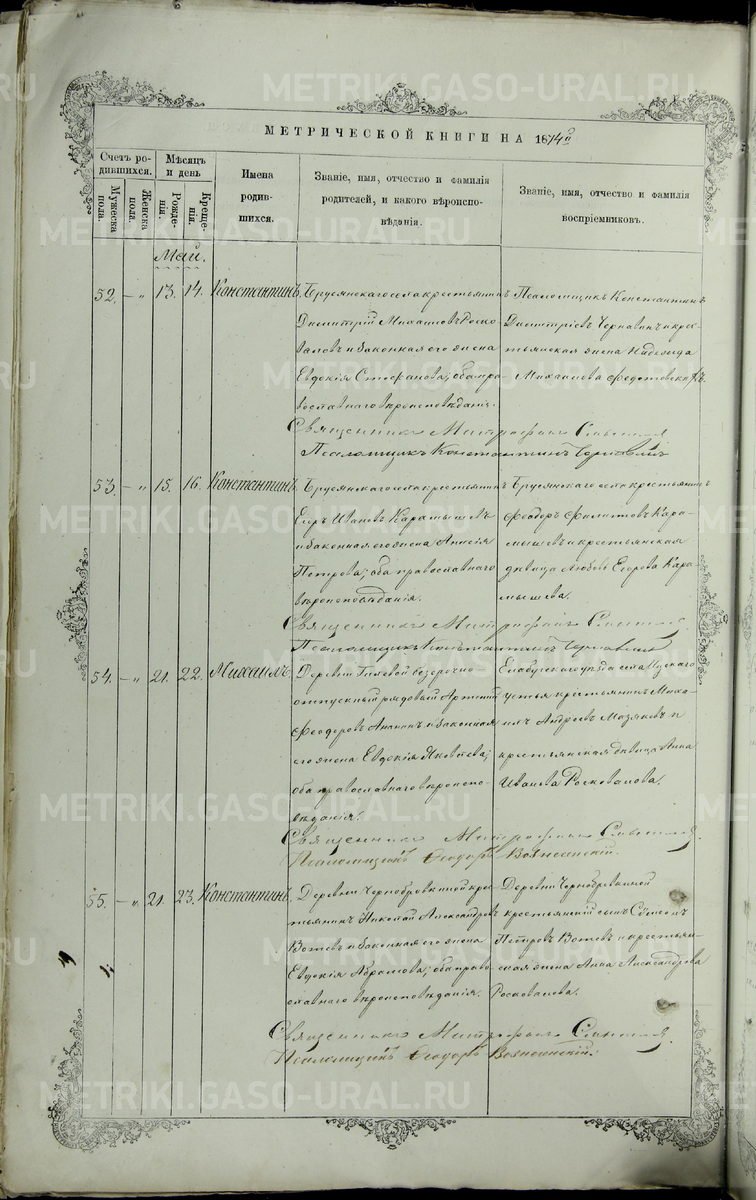 МЕТРИЧЕСКОЙ КНИГИ НА 1874й
Счетъ родившихся.
Мѣсяцъ и день
Имена родившихся.
Званіе, имя, отчество и фамилія родителей, и какого вѣроисповѣданія.
Званіе, имя, отчество и фамилія воспріемниковъ.
Мужеска пола.
Женска пола.
Рожденія.
Крещенія.
Май.
52. — „ 13. 14. Константинъ.
Брусянскаго села крестьянинъ
Димитрій Михаиловъ Роско-
валовъ и законная его жена
Евдокія Стефанова; оба пра-
вославнаго вѣроисповѣданія.
Псаломщикъ Константинъ
Димитріевъ Чернавинъ и крес-
тьянская жена Надежда
Михаилова Федотовскихъ.
Священникъ Митрофанъ
Псаломщикъ Константинъ Чернавинъ
53. — „ 15. 16. Константинъ.
Брусянскаго села крестьянинъ
Егоръ Ивановъ Карамышевъ
и законная его жена Анисія
Петрова; оба православнаго
вѣроисповѣданія.
Брусянскаго села крестьянинъ
Феодоръ Филитовъ Кара-
мышевъ и крестьянская
дѣвица Любовь Егорова Кара-
мышева.
Священникъ Митрофанъ
Псаломщикъ Константинъ Чернавинъ
54. — „ 21. 22. Михаилъ.
Деревни безсрочно-
отпускный рядовый Артемій
Феодоровъ Ананьинъ и законная
его жена Евдокія Яковлева;
оба православнаго вѣроиспо-
вѣданія.
Елабужскаго уѣзда села
устья крестьянинъ Миха-
илъ Андреевъ и
крестьянская дѣвица Анна
Иванова Росковалова.
Священникъ Митрофанъ
Псаломщикъ Феодоръ Вознесенскій.
55. — „ 21. 23. Константинъ.
Деревни Чернобровкиной кре-
стьянинъ Николай Александровъ
Вотевъ и законная его жена
Евдокія Абрамова; оба право-
славнаго вѣроисповѣданія.
Деревни Чернобровкиной
крестьянскій сынъ Сѵмеонъ
Петровъ Вотевъ и крестьян-
ская жена Анна Александрова
Росковалова.
Священникъ Митрофанъ
Псаломщикъ Феодоръ Вознесенскій.
METRIKI.GASO-URAL.RU